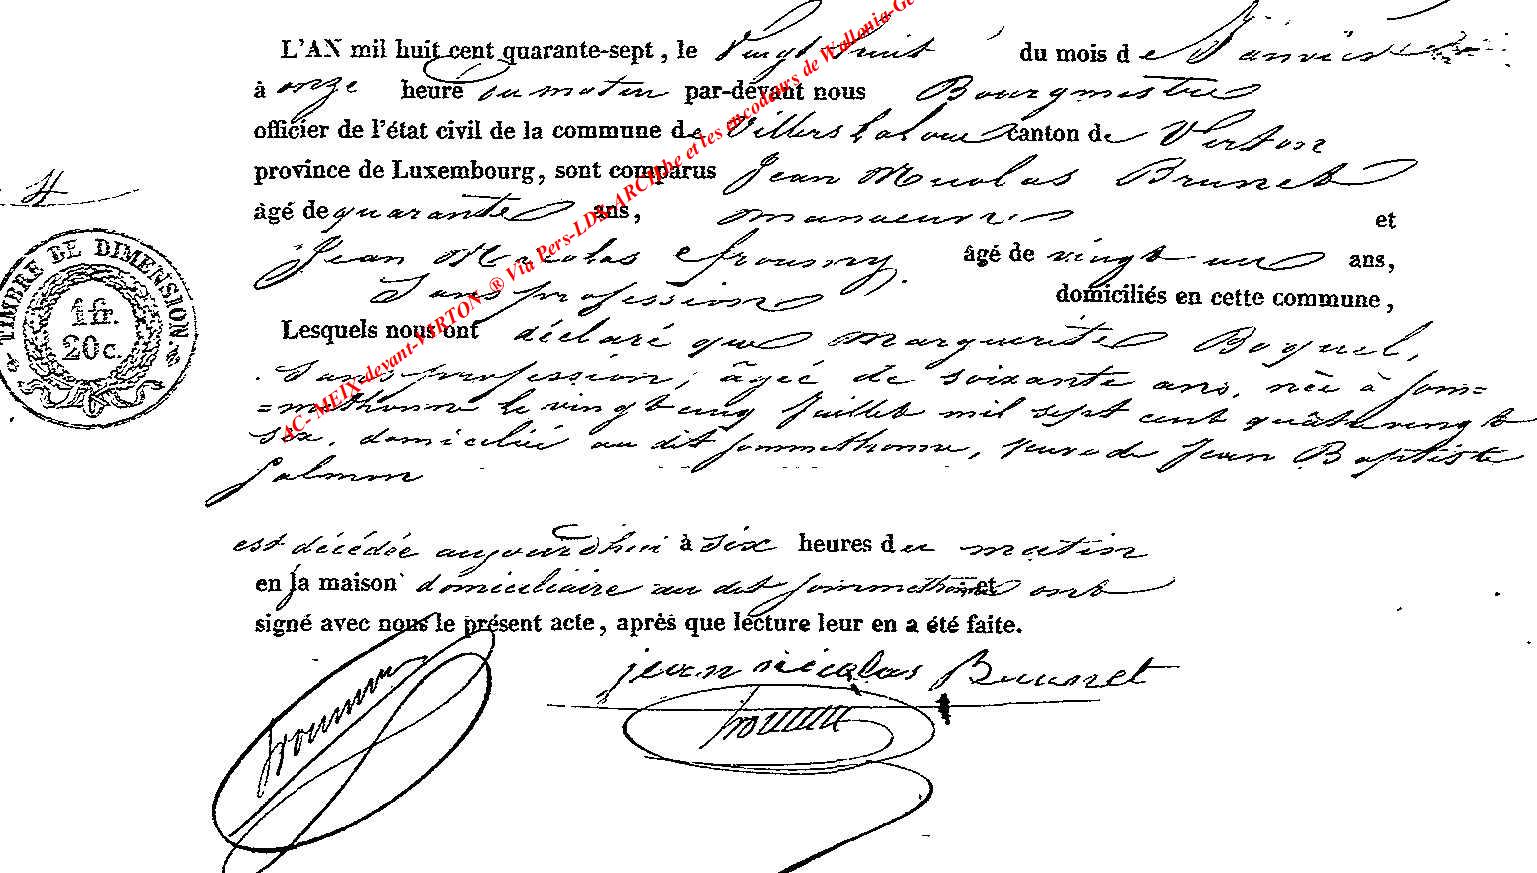 L'AN mil huit cent quarante-sept, le Vingt huit du mois de Janvier
à onze heure du matin par-devant nous Bourgmestre
officier de l'état civil de la commune de Villers la loue canton de Virton
province de Luxembourg, sont comparus Jean Nicolas Brunet
âgé de quarante ans, manoeuvre et
Jean Nicolas âgé de vingt un ans,
Sans profession domiciliés en cette commune,
Lesquels nous ont déclaré que Marguerite Boquel,
Sans profession, âgée de soixante ans, née à Som=
=methonne le vingt cinq Juillet mil sept cent quâtrevingt
six, domiciliée au dit Sommethonne, veuve de Jean Baptiste
Salmon
est décédée aujourd'hui à six heures du matin
en sa maison domiciliaire au dit Sommethonne et ont
signé avec nous le présent acte, après que lecture leur en a été faite.
jean nicolas Brunet
4
TIMBRE DE DIMENSION.
1 fr.
20 c.
AC-MEIX-devant-VIRTON ® Via Pers-LDX-ARCH.be et les encodeurs de Wallonia-Ge